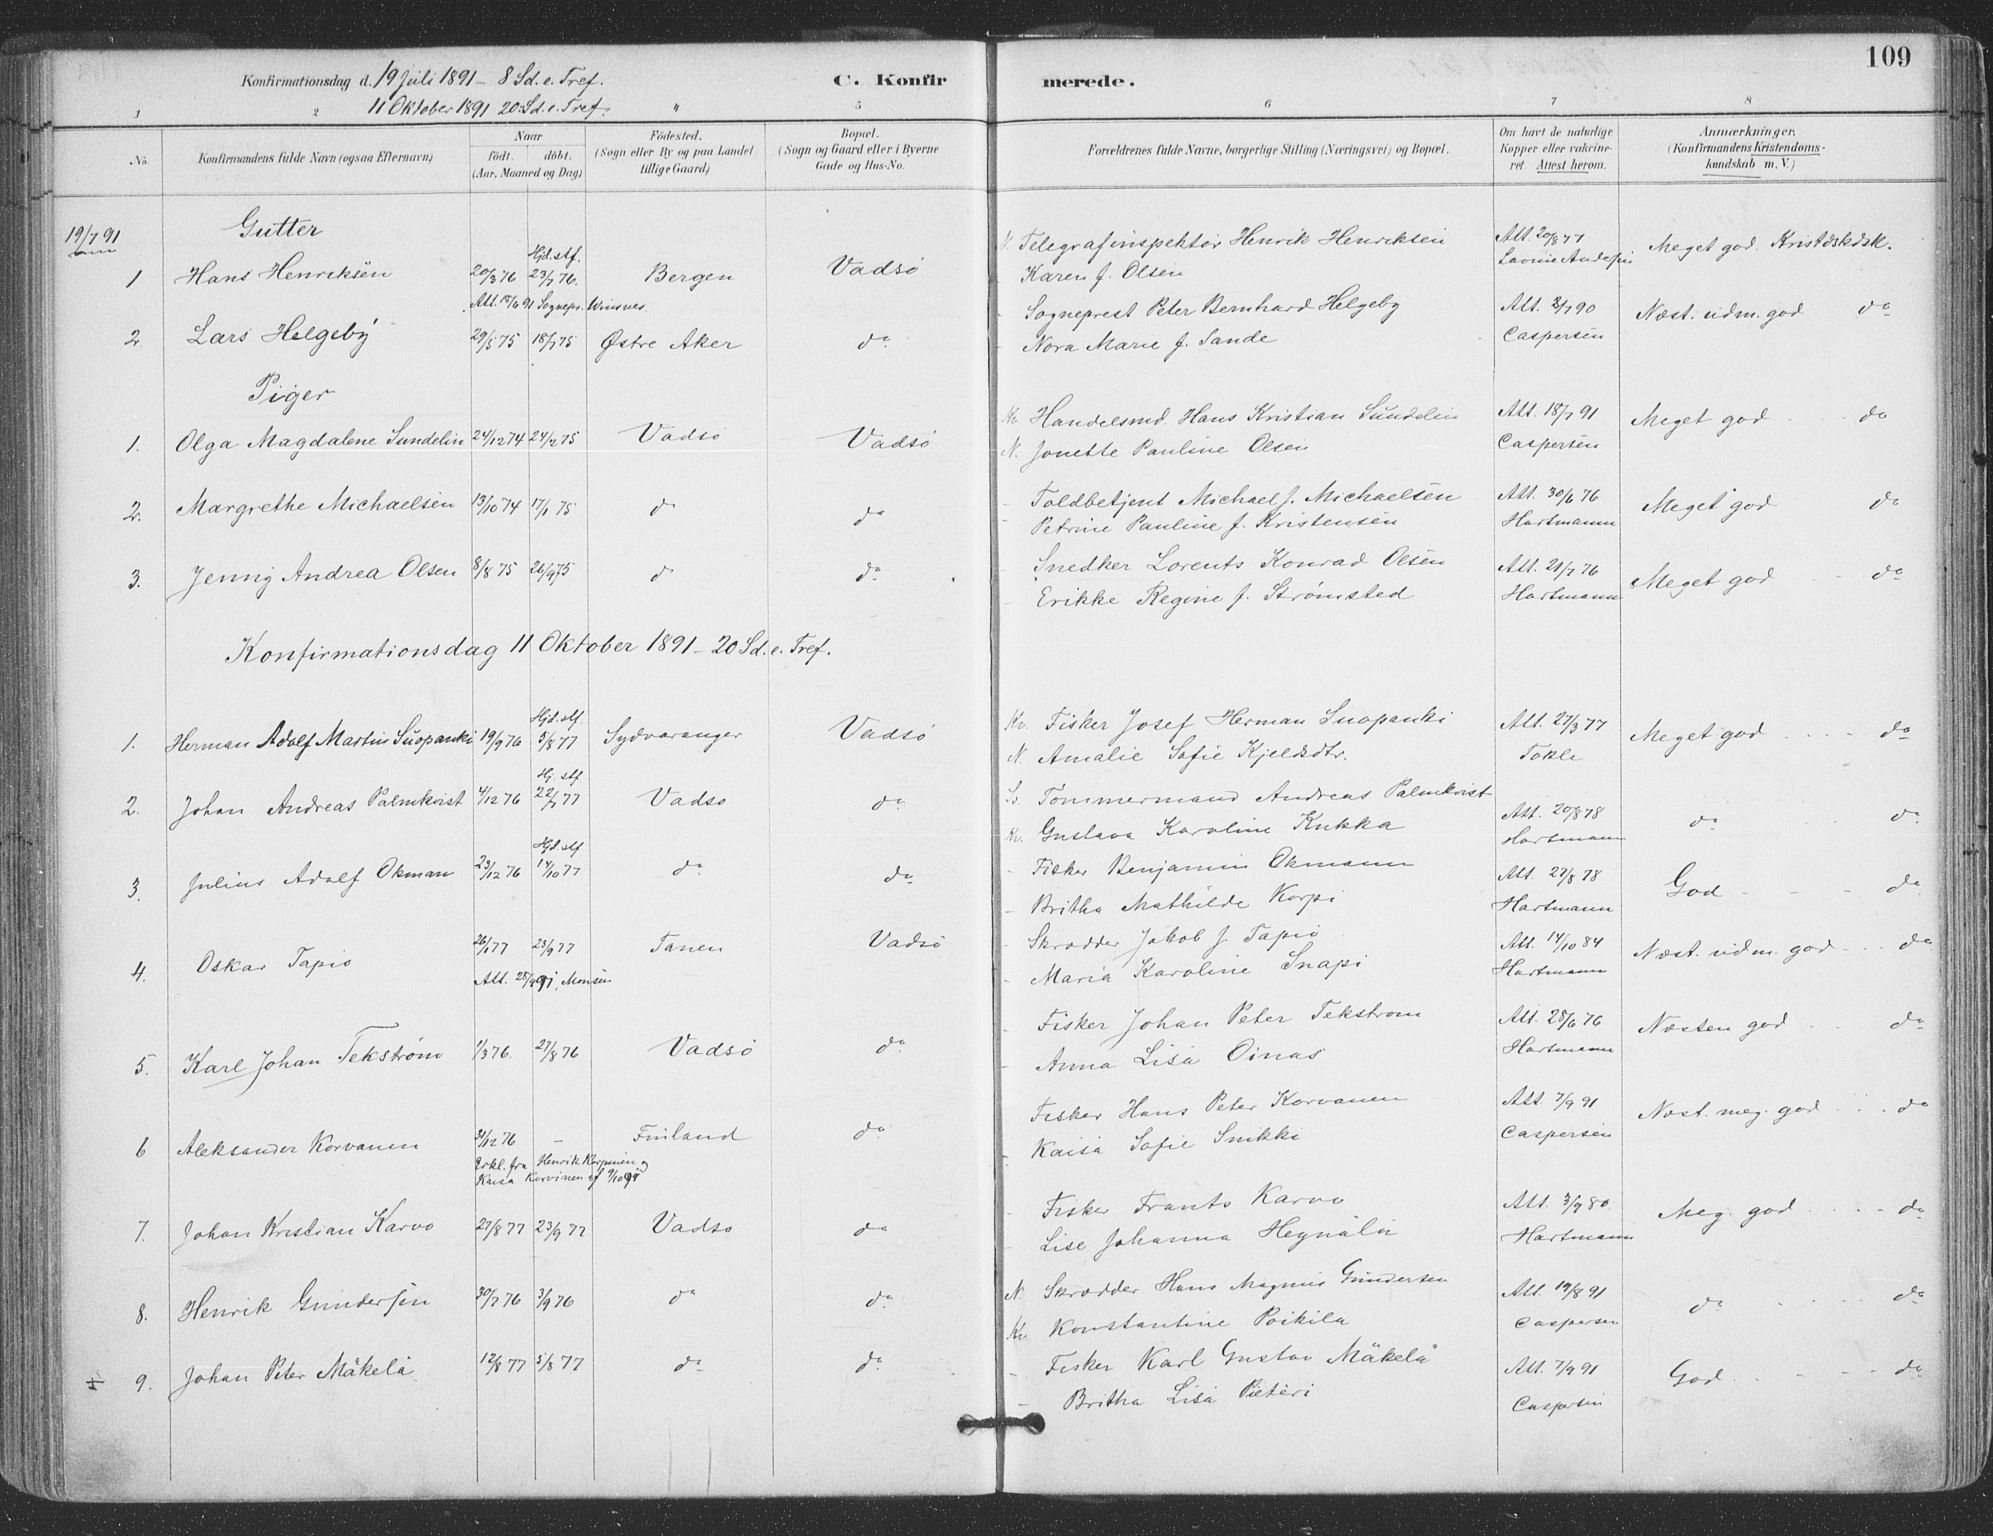 109
Konfirmationsdag d. 19 Juli 1891 - 8 Sd. e. Tref.
11 Oktober 1891 20. Sd. e. Tref.
C. Konfir merede.
1 2 4 5 6 7 8
No.
Konfirmandens fulde Navn (ogsaa Efternavn)
Naar
født. døbt.
(Aar, Maaned og Dag)
Fødested.
(Sogn eller By og paa Landet
tillige Gaard)
Bopæl.
(Sogn og Gaard eller i Byerne
Gade og Hus-No.
Forældrenes fulde Navne, borgerlige Stilling (Næringsvei) og Bopæl.
Om havt de naturlige
Kopper eller vakcine-
ret. Attest herom.
Anmærkninger.
(Konfirmandens Kristendoms-
kundskab m. V.)
19/7 91
Gutter
1 Hans Henriksen 20/3 76 Hjd. stf. 23/7 76. Bergen Vadsö N. Telegrafinspektör Henrik Henriksen Att. 20/8 77 Meget god Kristdskdsk.
Karen f. Olsen
Att. 18/6 91 Sognepr.
2. Lars Helgeby 29/5 75 18/7 75 Østre Aker do Sogneprest Peter Bernhard Helgeby Att. 2/7 90 Næst. udm. god do
Nora Marie f. Sande Caspersen
Piger
1. Olga Magdalene Sundelin 24/12 74 24/2 75 Vadsö Vadsö Kv. Handelsmd. Hans Kristian Sundelin Att. 18/7 91 Meget god do
N. Jonette Pauline Olsen Caspersen
2. Margrethe Michaelsen 13/10 74 17/1 75 do do - Toldbetjent Michael J. Michaelsen Att. 30/6 76 Meget god do
- Petrine Pauline f. Kristensen Hartmann
3. Jenny Andrea Olsen 8/8 75 26/9 75 do do Snedker Lorents Konrad Olsen Att. 21/7 76 Meget god - - do
- Erikke Regine f. Strømsted Hartmann
Konfirmationsdag 11 Oktober 1891 - 20 Sd. e. Tref.
1. Herman Adolf Martin Suopanki 19/9 76 Hjd. stf. 5/8 77 Sydvaranger Vadsö Kv. Fisker Josef Herman Suopanki Att. 27/3 77 Meget god - - - - do
N. Amalie Sofie Kjeldsdtr. Tokle
2. Johan Andreas Palmkvist 4/12 76 Hj. stf 22/7 77 Vadsö do Sv. Tömmermand Andreas Palmkvist Att. 20/8 78 do do
Kv. Gustava Karoline Kukka Hartmann
3. Julius Adolf Okman 23/12 76 Hjd. stf 14/10 77 do do - Fisker Benjamin Okmann Att. 27/8 78 God - - - do
- Britha Mathilde Korpi Hartmann
4. Oskar Tapio 26/1 77 23/9 77 Tanen Vadsö - Skrædder Jakob J. Tapio Att. 14/10 84 Næst. udm. god - - - do
Att. 25/9 91, Monsen - Maria Karoline Snapi Hartmann
5. Karl Johan Tekström 1/3 76. 27/8 76 Vadsö do - Fisker Johan Peter Tekstrom Att. 28/6 76 Næsten god - - do
- Anna Lisa Oinas Hartmann
6 Aleksander Korvanen 31/12 76 - Finland do - Fisker Hans Peter Korvanen Att. 7/9 91 Næst. meg. god - - - do
Erkl. fra Henrik Karpinen og - Kaisa Sofie Snikki Caspersen
Kaisa Korvinen af 9/10 91
7. Johan Kristian Karvo 27/8 77 23/9 77 Vadsö do - Fisker Frants Karvo Att. 3/9 80 Meg. god - - - - do
- Lise Johanna Heynälä Hartmann
8. Henrik Gundersen 30/7 76 3/9 76 do do N. Skrædder Hans Magnus Gundersen Att. 19/8 91 do - - - - do
Kv. Konstantine Poikila Caspersen
+ 9. Johan Peter Mäkelä 12/8 77 5/8 77 do do - Fisker Karl Gustav Mäkelä Att. 7/9 91 God - - - - do
- Britha Lisa Pieteri Caspersen